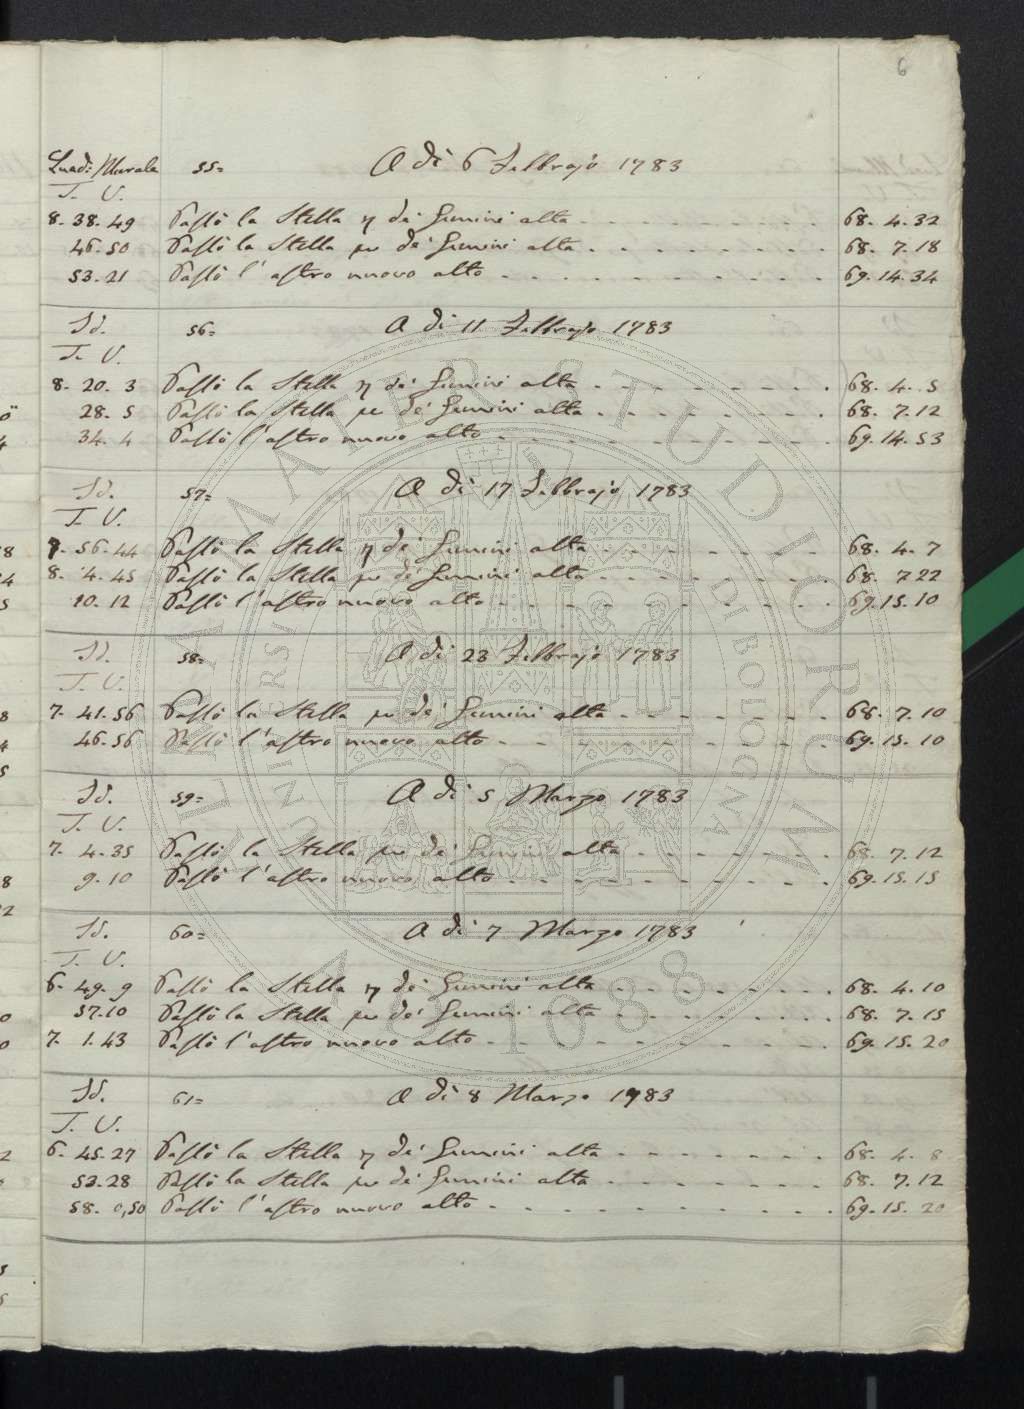 6
Quad: Murale 55= A dì 6 Febbrajo 1783
T. V.
8. 38. 49 Passò la Stella η de' Gemini alta 68. 4. 32
46. 50 Passò la Stella μ de' Gemini alta 68. 7. 18
53. 21 Passò l'astro nuovo alto 69. 14. 34
Id. 56= A dì 11 Febbrajo 1783
T. V.
8. 20. 3 Passò la Stella η de' Gemini alta 68. 4. 5
28. 5 Passò la Stella μ de' Gemini alta 68. 7. 12
34. 4 Passò l'astro nuovo alto 69. 14. 53
Id. 57= A dì 17 Febbrajo 1783
T. V.
7. 56. 44 Passò la Stella η de' Gemini alta 68. 4. 7
8. 4. 45 Passò la Stella μ de' Gemini alta 68. 7 22
10. 12 Passò l'astro nuovo alto 69. 15. 10
Id. 58= A dì 23 Febbrajo 1783
T. V.
7. 41. 56 Passò la Stella μ de' Gemini alta 68. 7. 10
46. 56 Passò l'astro nuovo alto 69. 15. 10
Id. 59= A dì 5 Marzo 1783
T. V.
7. 4. 35 Passò la Stella μ de' Gemini alta 68. 7. 12
9. 10 Passò l'astro nuovo alto 69. 15. 15
Id. 60= A dì 7 Marzo 1783
T. V.
6. 49. 9 Passò la Stella η de' Gemini alta 68. 4. 10
57. 10 Passò la Stella μ de' Gemini alta 68. 7. 15
7. 1. 43 Passò l'astro nuovo alto 69. 15. 20
Id. 61= A dì 8 Marzo 1783
T. V.
6. 45. 27 Passò la Stella η de' Gemini alta 68. 4. 8
53. 28 Passò la Stella μ de' Gemini alta 68. 7. 12
58. 0,50 Passò l'astro nuovo alto 69. 15. 20
ALMA MATER STUDIORUM
UNIVERSI DI BOLOGNA
A. D. 1088